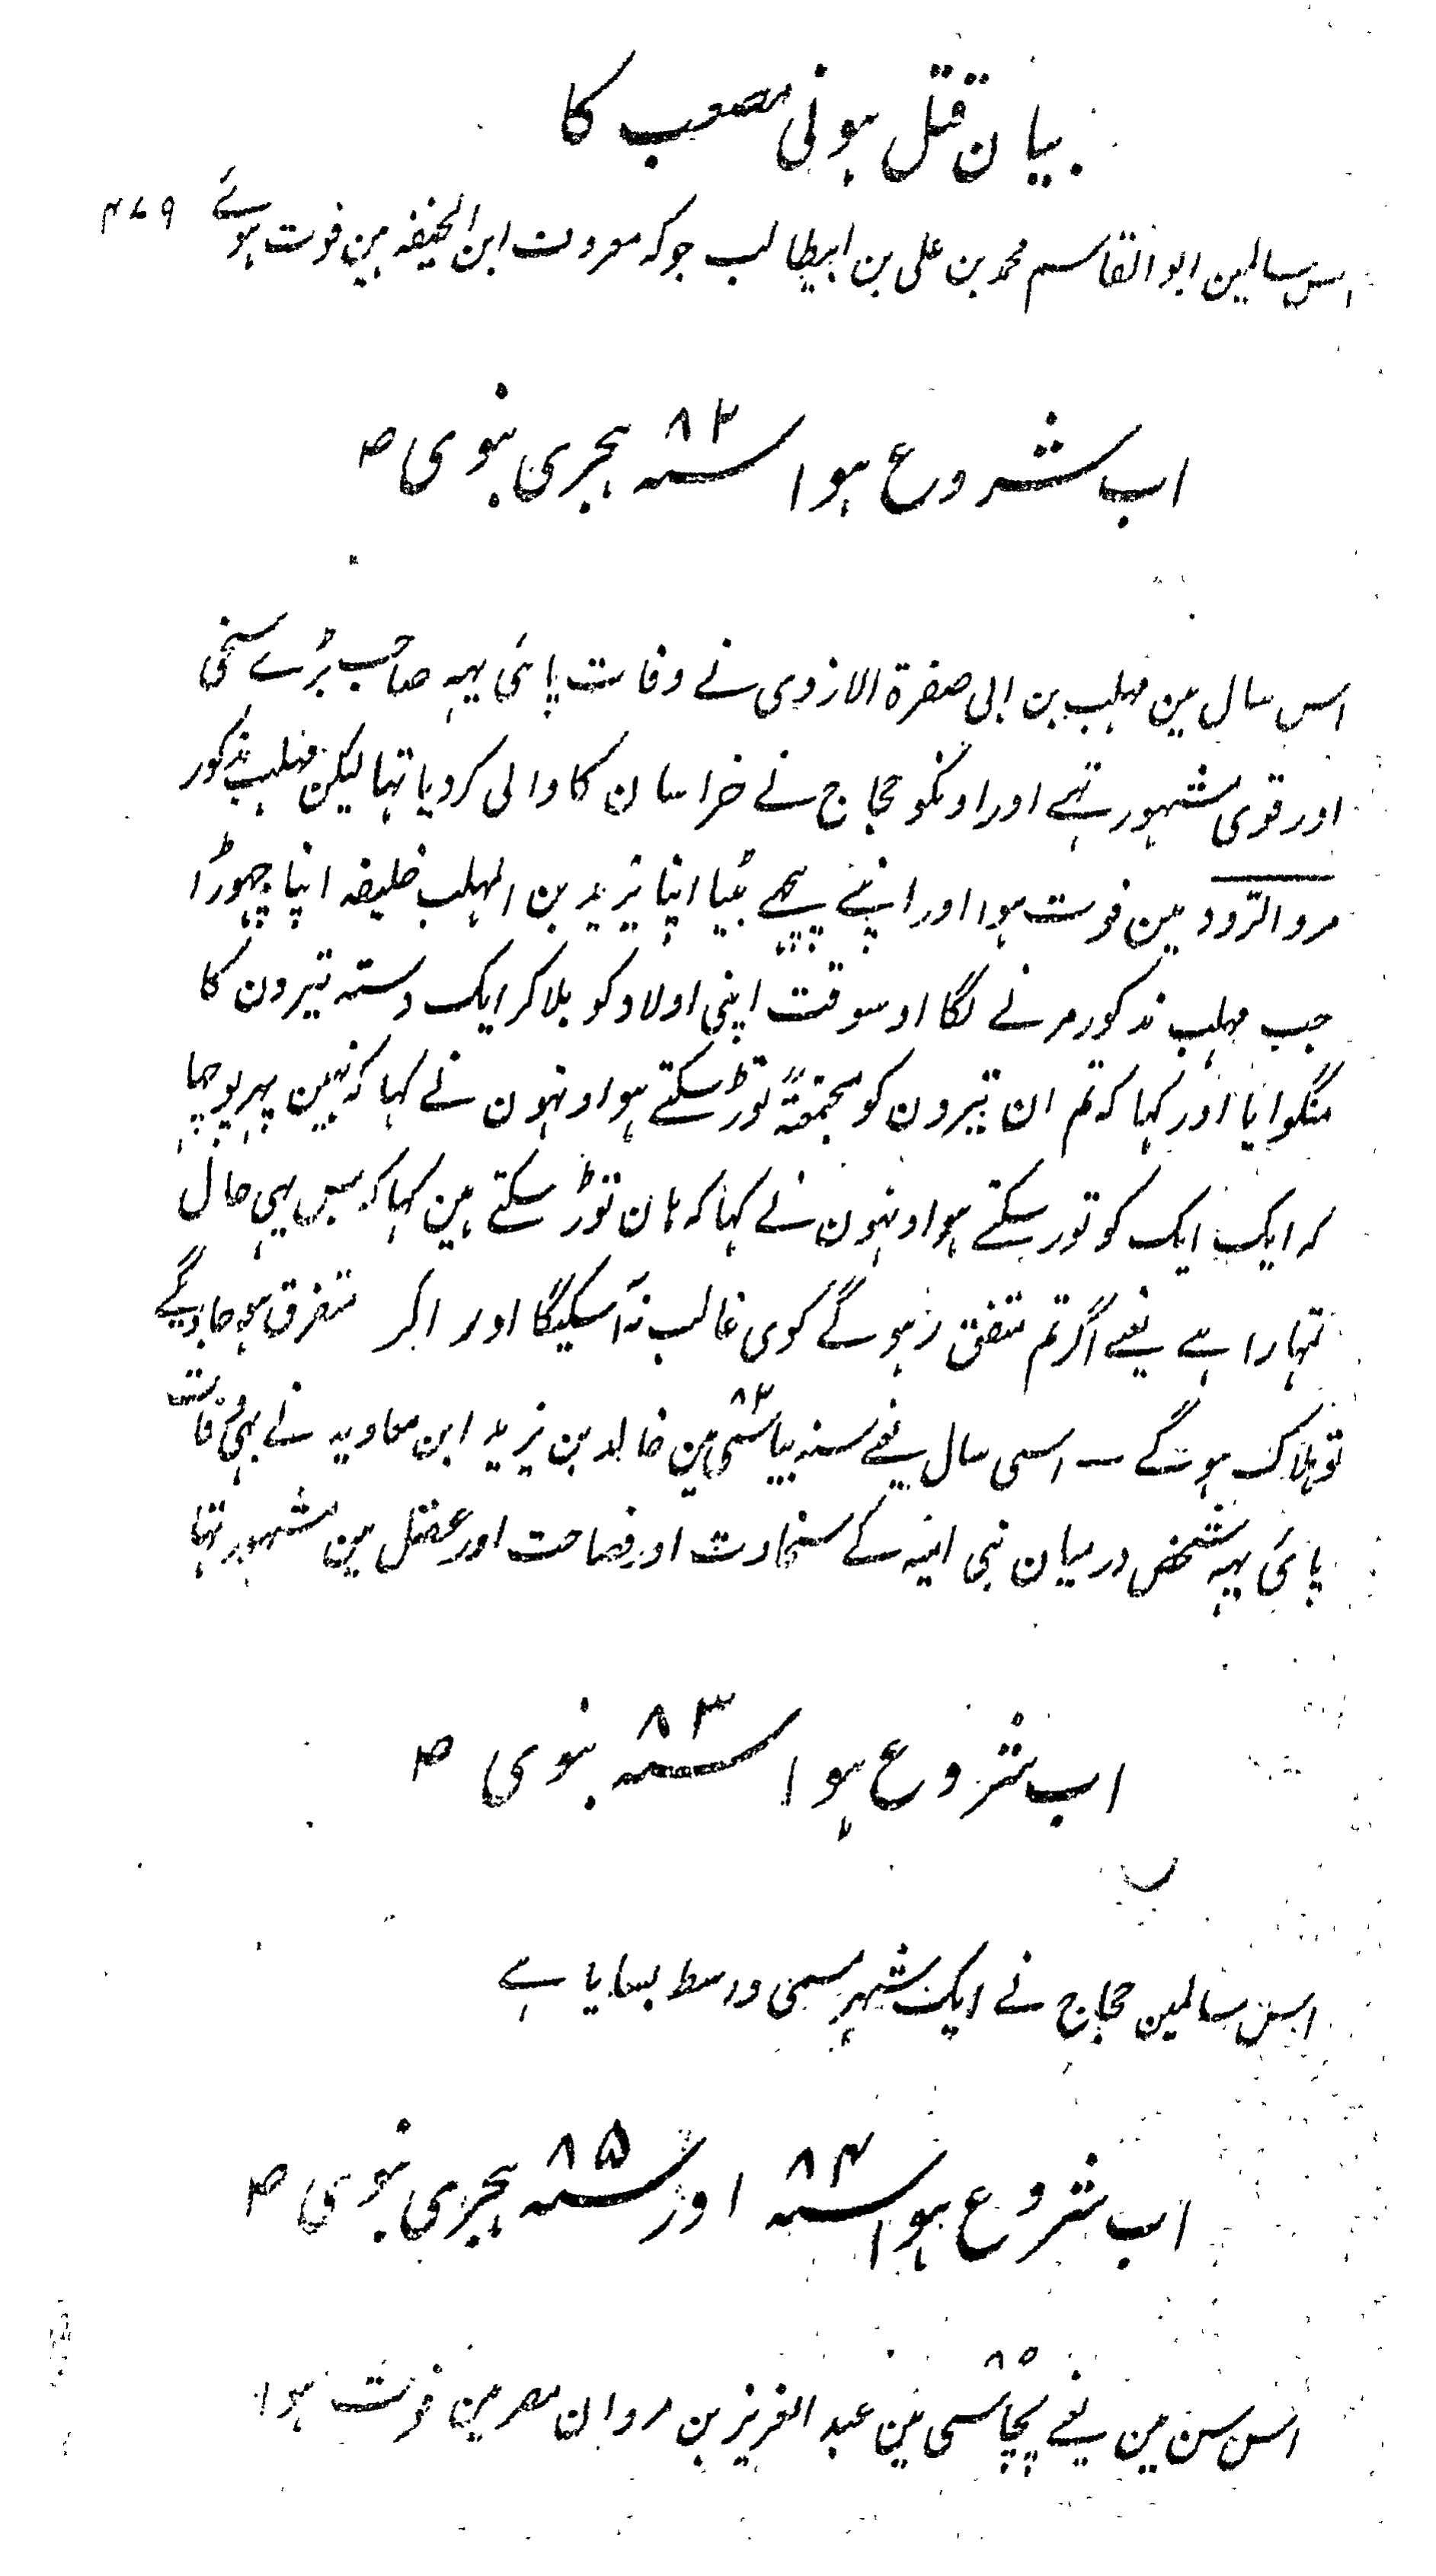 بیان قتل ہونی مصعب کا
۴۷۹
اس سالمین ابوالقاسم محمد بن علی بن ابیطالب جوکہ معروف ابن الحنیفہ ہین فوت ہوئے
اب شروع ہوا سنہ ۸۲ ہجری نبوی ص
اس سال مین مہلب بن ابی صفرۃ الازدی نے وفات پائی یہہ صاحب بڑے سخی
اور قوی مشہور تہے اور اونکو حجاج نے خراسان کا والی کردیا تہا لیکن مہلب مذکور
مرو الرّود مین فوت ہوا اور اپنے پیچھے بیٹا اپنا یزید بن المہلب خلیفہ اپنا چہوڑا
جب مہلب مذکور مرنے لگا اوسوقت اپنی اولاد کو بلاکر ایک دستہ تیرون کا
منگوایا اور کہا کہ تم ان تیرون کو مجتمعۃً توڑ سکتے ہو اونہون نے کہا کہ نہین پہر پوچہا
کہ ایک ایک کو تور سکتے ہو اونہون نے کہا کہ ہان توڑ سکتے ہین کہا کہ بس یہی حال
تمہارا ہے یعنے اگر تم متفق رہوگے کوی غالب نہ آسکیگا اور اکر متفرق ہوجاؤگے
تو ہلاک ہوگے ــ اسی سال یعنے سنہ بیاسی ۸۲ مین خالد بن یزید ابن معاویہ نے بہی وفات
پائی یہہ شخص درمیان بنی امیہ کے سخاوت اور فصاحت اور عقل مین مشہور تہا
اب شروع ہوا سنہ ۸۳ نبوی ص
اس سالمین حجاج نے ایک شہر مسمی واسط بسایا ہے
اب شروع ہوا سنہ ۸۴ اور سنہ ۸۵ ہجری نبوی ص
اس سن مین یعنے پچاسی ۸۵ مین عبد العزیز بن مروان مصر مین فوت ہوا